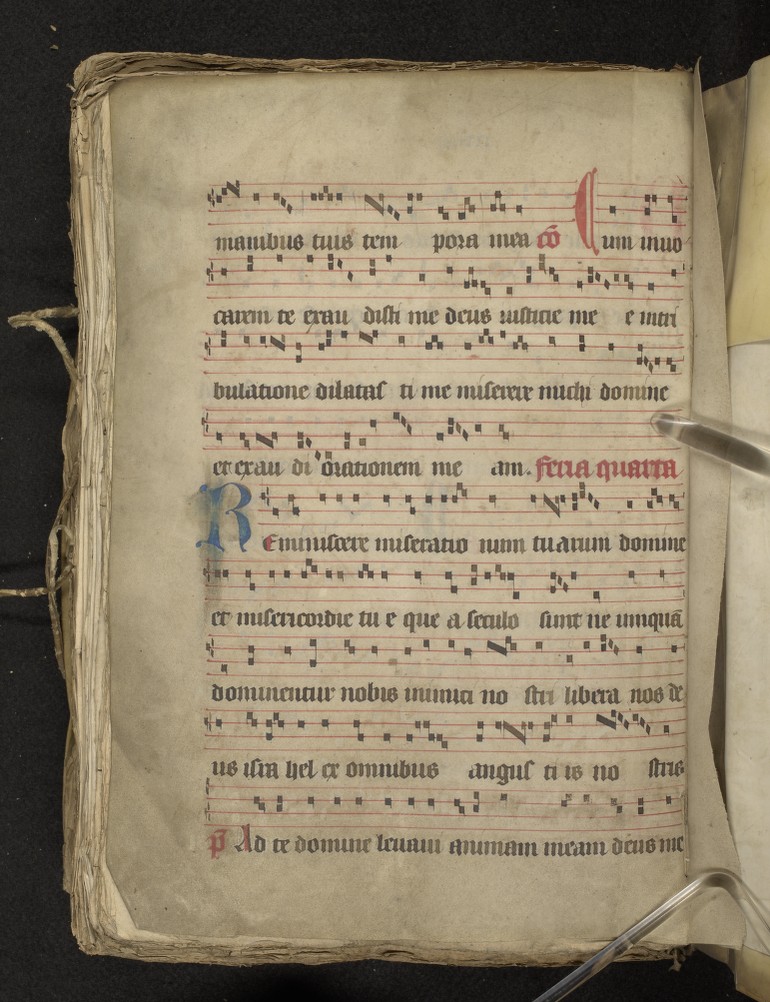 manibus tuis tem pora mea cō Cum inuo
carem te exau disti me deus iusticie me e in tri
bulatione dilatas ti me miserere michi domine
et exau di orationem me am. feria quarta
Reminiscere miseratio num tuarum domine
et misericordie tu e que a seculo sunt ne umquā
dominentur nobis inimici no stri libera nos de
us isra hel ex omnibus angus ti is no stris
p̄ Ad te domine leuaui animam meam deus me